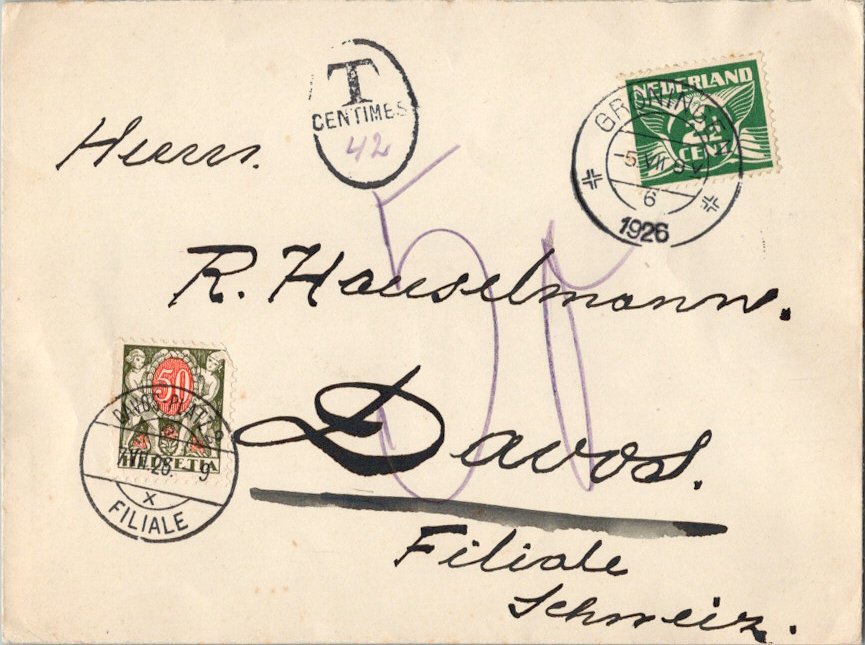 T
CENTIMES
42
NEDERLAND
CENT
GRONINGEN
-5.VII 9V
6
1926
Herrn.
R. Hauselmann.
50
50
HELVETIA
DAVOS-PLATZ 2
VII.26. 9
X
FILIALE
Davos.
Filiale
Schweiz.